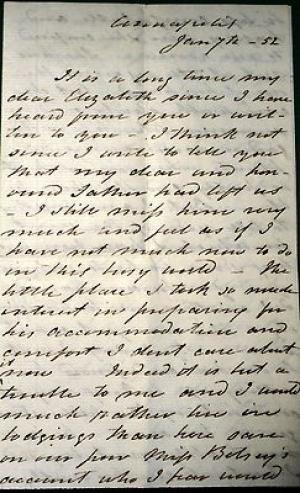 Annapolis
Jan 7th - 52
It is a long time my
dear Elizabeth since I have
heard from you or writ-
ten to you - I think not
since I wrote to tell you
that my dear and hon-
ored Father had left us
- I still miss him very
much and feel as if I
have not much now to do
in this busy world - The
little place I took so much
interest in preparing for
his accommodation and
comfort I dont care about
now Indeed it is but a
trouble to me and I would
much rather live in
lodgings than here save
on our poor Miss Betsey's
account who I fear would